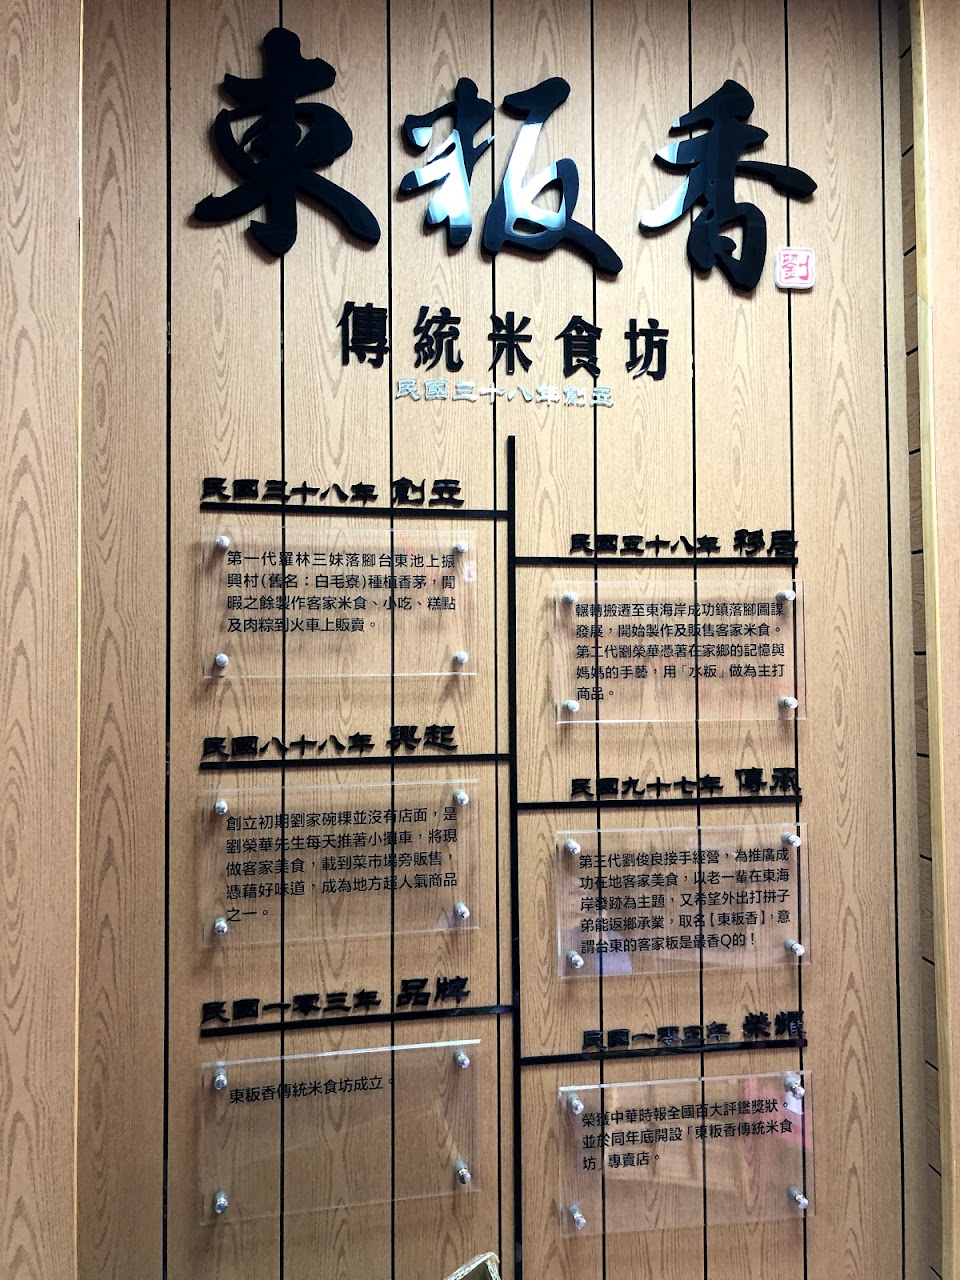 東粄香
劉
傳統米食坊
民國三十八年創立
民國三十八年 創立
第一代羅林三妹落腳台東池上振
興村(舊名：白毛寮)種植香茅，閒
暇之餘製作客家米食、小吃、糕點
及肉粽到火車上販賣。
民國五十八年 移居
輾轉搬遷至東海岸成功鎮落腳圖謀
發展，開始製作及販售客家米食。
第二代劉榮華憑著在家鄉的記憶與
媽媽的手藝，用「水粄」做為主打
商品。
民國八十八年 興起
創立初期劉家碗粿並沒有店面，是
劉榮華先生每天推著小攤車，將現
做客家美食，載到菜市場旁販售，
憑藉好味道，成為地方超人氣商品
之一。
民國九十七年 傳承
第三代劉俊良接手經營，為推廣成
功在地客家美食，以老一輩在東海
岸發跡為主題，又希望外出打拼子
弟能返鄉承業，取名【東粄香】，意
謂台東的客家粄是最香Q的！
民國一零三年 品牌
東粄香傳統米食坊成立。
民國一零五年 榮耀
榮獲中華時報全國百大評鑑獎狀。
並於同年底開設「東粄香傳統米食
坊」專賣店。